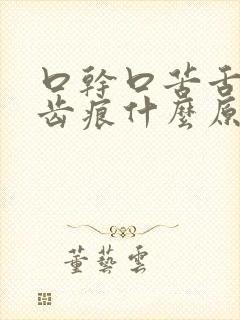 口幹口苦舌
齿痕什麼原
董藝雲